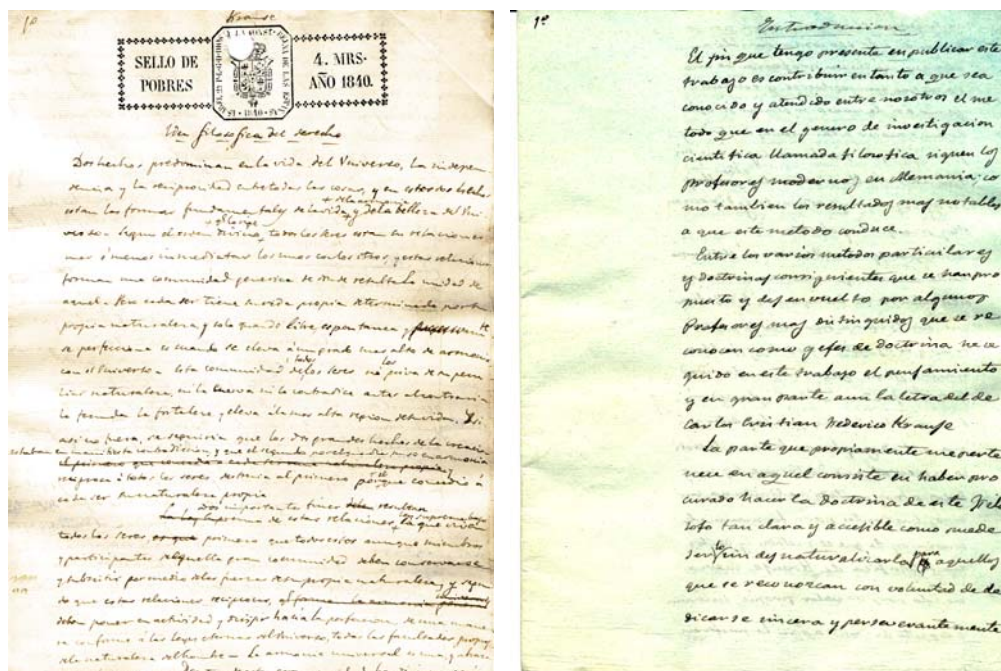 1º
Krause
SELLO DE
POBRES
4. MRS.
AÑO 1840.
Idea filosofica del derecho
Dos hechos predominan en la vida del Universo, la indepen
dencia y la reciprocidad entre todas las cosas, y en estos dos hechos
estan las formas fundamentales de la vida y de la belleza del Uni
verso. Segun el orden divino, todos los seres estan en relacion
mas ó menos inmediata los unos con los otros, y estas relaciones
forman una comunidad generica de donde resulta la unidad de
aquel. Pero cada ser tiene su vida propia determinada por su
propia naturaleza, y solo cuando libre, espontanea y
se perfecciona es cuando se eleva á un grado mas alto de armonia
con el Universo. Esta comunidad de todos los seres no priva de su pecu
liar naturaleza, ni la enerva ni la contradice antes al contrario
la fecunda la fortalece y eleva á la mas alta region de su vida. Si
asi no fuera, se seguiria que los dos grandes hechos de la creacion
estaban en manifiesta contradiccion, y que el segundo
reciproca á todos los seres, destruia al primero porque concedio á
cada ser su naturaleza propia
Dos importantes
de estas relaciones, la que
todos los seres, primero que todos estos aunque miembros
y participantes de aquella gran comunidad deben conservarse
y subsistir por medio de las fuerzas de su propia naturaleza, y segun
do que estas relaciones reciprocas,
deben poner en actividad y dirigir hacia la perfeccion, de una manera
conforme á las leyes eternas del Universo, todas las facultades propias
de la naturaleza del hombre. La armonia universal es una, y abraza
1º
Introduccion
El fin que tengo presente en publicar este
trabajo es contribuir en tanto a que sea
conocido y atendido entre nosotros el me
todo que en el genero de investigacion
cientifica llamada filosofica siguen los
profesores modernos en Alemania, co
mo tambien los resultados mas notables
a que este metodo conduce.
Entre los varios metodos particulares
y doctrinas consiguientes que se han pro
puesto y desenvuelto por algunos
Profesores mas distinguidos que se re
conocen como gefes de doctrina he se
guido en este trabajo el pensamiento
y en gran parte aun la letra del de
Carlos Cristian Federico Krause
La parte que propiamente me perte
nece en aquel consiste en haber pro
curado hacer la doctrina de este Filo
sofo tan clara y accesible como puede
serlo sin desnaturalizarla para aquellos
que se reconozcan con voluntad de de
dicarse sincera y perseverantemente